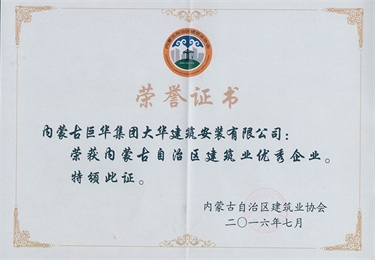 荣誉证书
内蒙古巨华集团大华建筑安装有限公司：
荣获内蒙古自治区建筑业优秀企业。
特颁此证。
内蒙古自治区建筑业协会
二〇一六年七月